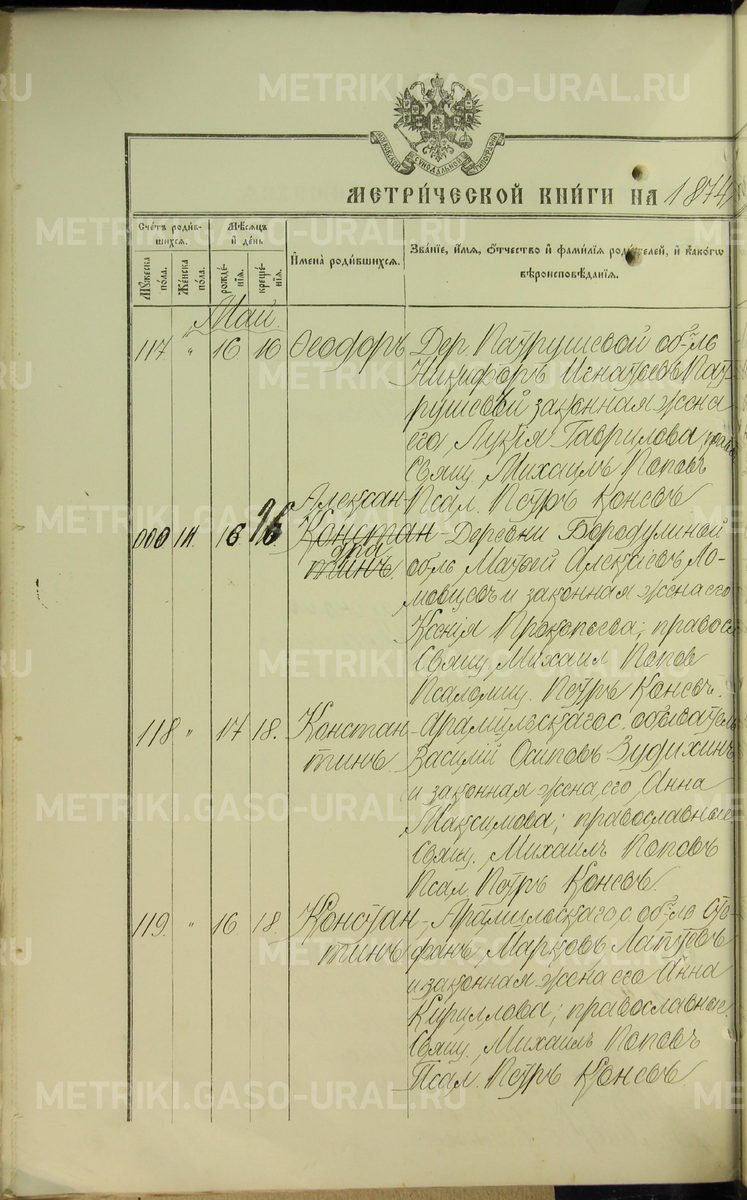 METRIKI.GASO-URAL.RU
МЕТРИ́ЧЕСКОЙ КНИ́ГИ НА 1874
Счетъ роди́вшихся.
Мѣсяцъ и́ день
И́мена̀ роди́вшихся.
Зва́нїе, и́мя, ѻ́тчество и́ фами́лїѧ роди́телей, и́ како́гѡ вѣроисповѣ́данїѧ.
Мꙋжеска по́ла.
Же́нска по́ла.
рожде́нїѧ.
креще́нїѧ.
Май.
117 " 16 16 Ѳеодоръ
Дер. Патрушевой об-ль
Никифоръ Игнатьевъ Пат-
рушевъ и законная жена
его, Лукія Гаврилова
Свящ. Михаилъ Поповъ
Псал. Петръ Коневъ
000 111. 16 26
Алексан-
Констан-
дра
тинъ.
Деревни Бородулиной
об-ль Матѳей Алексіевъ Ло-
мовцевъ и законная жена его
Ксенія Прокопьева; правосл
Свящ. Михаил Попов
Псаломщ. Петръ Коневъ.
118 " 17 18. Констан-
тинъ.
Арамильскаго с. обыватель
Василій Осиповъ Зудихинъ
и законная жена его Анна
Максимова; православные
Свящ. Михаилъ Поповъ
Псал. Петръ Коневъ.
119. " 16 18. Констан-
тинъ
Арамильскаго с. об-ль Сте-
фанъ Марковъ Лаптевъ
и законная жена его Анна
Кириллова; православные.
Свящ. Михаилъ Поповъ
Псал. Петръ Коневъ